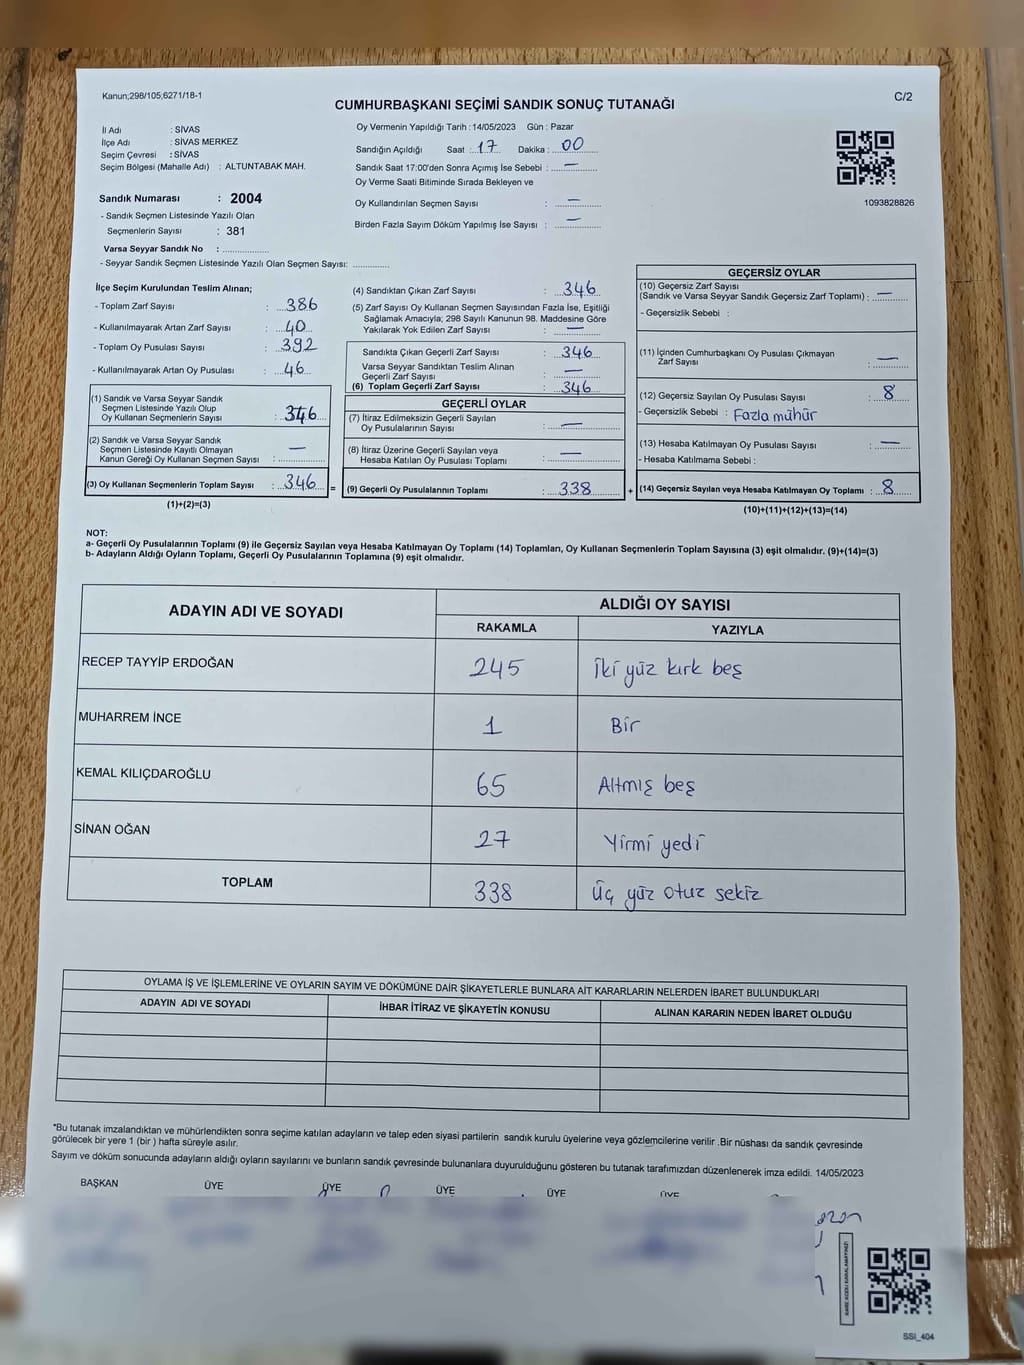 Kanun;298/105;6271/18-1
C/2
CUMHURBAŞKANI SEÇİMİ SANDIK SONUÇ TUTANAĞI
İl Adı : SİVAS
İlçe Adı : SİVAS MERKEZ
Seçim Çevresi : SİVAS
Seçim Bölgesi (Mahalle Adı) : ALTUNTABAK MAH.
Sandık Numarası : 2004
- Sandık Seçmen Listesinde Yazılı Olan
Seçmenlerin Sayısı : 381
Varsa Seyyar Sandık No : ....................
- Seyyar Sandık Seçmen Listesinde Yazılı Olan Seçmen Sayısı: ...............
Oy Vermenin Yapıldığı Tarih : 14/05/2023 Gün : Pazar
Sandığın Açıldığı Saat : 17 Dakika : 00
Sandık Saat 17:00'den Sonra Açımış İse Sebebi : —
Oy Verme Saati Bitiminde Sırada Bekleyen ve
Oy Kullandırılan Seçmen Sayısı : —
Birden Fazla Sayım Döküm Yapılmış İse Sayısı : —
1093828826
İlçe Seçim Kurulundan Teslim Alınan;
- Toplam Zarf Sayısı : 386
- Kullanılmayarak Artan Zarf Sayısı : 40
- Toplam Oy Pusulası Sayısı : 392
- Kullanılmayarak Artan Oy Pusulası : 46
(1) Sandık ve Varsa Seyyar Sandık
Seçmen Listesinde Yazılı Olup
Oy Kullanan Seçmenlerin Sayısı : 346
(2) Sandık ve Varsa Seyyar Sandık
Seçmen Listesinde Kayıtlı Olmayan —
Kanun Gereği Oy Kullanan Seçmen Sayısı :
(3) Oy Kullanan Seçmenlerin Toplam Sayısı : 346 =
(1)+(2)=(3)
(4) Sandıktan Çıkan Zarf Sayısı : 346
(5) Zarf Sayısı Oy Kullanan Seçmen Sayısından Fazla İse, Eşitliği
Sağlamak Amacıyla; 298 Sayılı Kanunun 98. Maddesine Göre
Yakılarak Yok Edilen Zarf Sayısı : —
Sandıkta Çıkan Geçerli Zarf Sayısı : 346
Varsa Seyyar Sandıktan Teslim Alınan
Geçerli Zarf Sayısı : —
(6) Toplam Geçerli Zarf Sayısı : 346
GEÇERLİ OYLAR
(7) İtiraz Edilmeksizin Geçerli Sayılan
Oy Pusulalarının Sayısı : —
(8) İtiraz Üzerine Geçerli Sayılan veya
Hesaba Katılan Oy Pusulası Toplamı : —
(9) Geçerli Oy Pusulalarının Toplamı : 338 +
GEÇERSİZ OYLAR
(10) Geçersiz Zarf Sayısı
(Sandık ve Varsa Seyyar Sandık Geçersiz Zarf Toplamı) : —
- Geçersizlik Sebebi :
(11) İçinden Cumhurbaşkanı Oy Pusulası Çıkmayan
Zarf Sayısı : —
(12) Geçersiz Sayılan Oy Pusulası Sayısı : 8
- Geçersizlik Sebebi : Fazla mühür
(13) Hesaba Katılmayan Oy Pusulası Sayısı : —
- Hesaba Katılmama Sebebi :
(14) Geçersiz Sayılan veya Hesaba Katılmayan Oy Toplamı : 8
(10)+(11)+(12)+(13)=(14)
NOT:
a- Geçerli Oy Pusulalarının Toplamı (9) ile Geçersiz Sayılan veya Hesaba Katılmayan Oy Toplamı (14) Toplamları, Oy Kullanan Seçmenlerin Toplam Sayısına (3) eşit olmalıdır. (9)+(14)=(3)
b- Adayların Aldığı Oyların Toplamı, Geçerli Oy Pusulalarının Toplamına (9) eşit olmalıdır.
ADAYIN ADI VE SOYADI
ALDIĞI OY SAYISI
RAKAMLA YAZIYLA
RECEP TAYYİP ERDOĞAN 245 İki yüz kırk beş
MUHARREM İNCE 1 Bir
KEMAL KILIÇDAROĞLU 65 Altmış beş
SİNAN OĞAN 27 Yirmi yedi
TOPLAM 338 Üç yüz otuz sekiz
OYLAMA İŞ VE İŞLEMLERİNE VE OYLARIN SAYIM VE DÖKÜMÜNE DAİR ŞİKAYETLERLE BUNLARA AİT KARARLARIN NELERDEN İBARET BULUNDUKLARI
ADAYIN ADI VE SOYADI İHBAR İTİRAZ VE ŞİKAYETİN KONUSU ALINAN KARARIN NEDEN İBARET OLDUĞU
*Bu tutanak imzalandıktan ve mühürlendikten sonra seçime katılan adayların ve talep eden siyasi partilerin sandık kurulu üyelerine veya gözlemcilerine verilir .Bir nüshası da sandık çevresinde
görülecek bir yere 1 (bir ) hafta süreyle asılır.
Sayım ve döküm sonucunda adayların aldığı oyların sayılarını ve bunların sandık çevresinde bulunanlara duyurulduğunu gösteren bu tutanak tarafımızdan düzenlenerek imza edildi. 14/05/2023
BAŞKAN ÜYE ÜYE ÜYE ÜYE ÜYE
KARE KODU KARALAMAYINIZ!
SSI_404